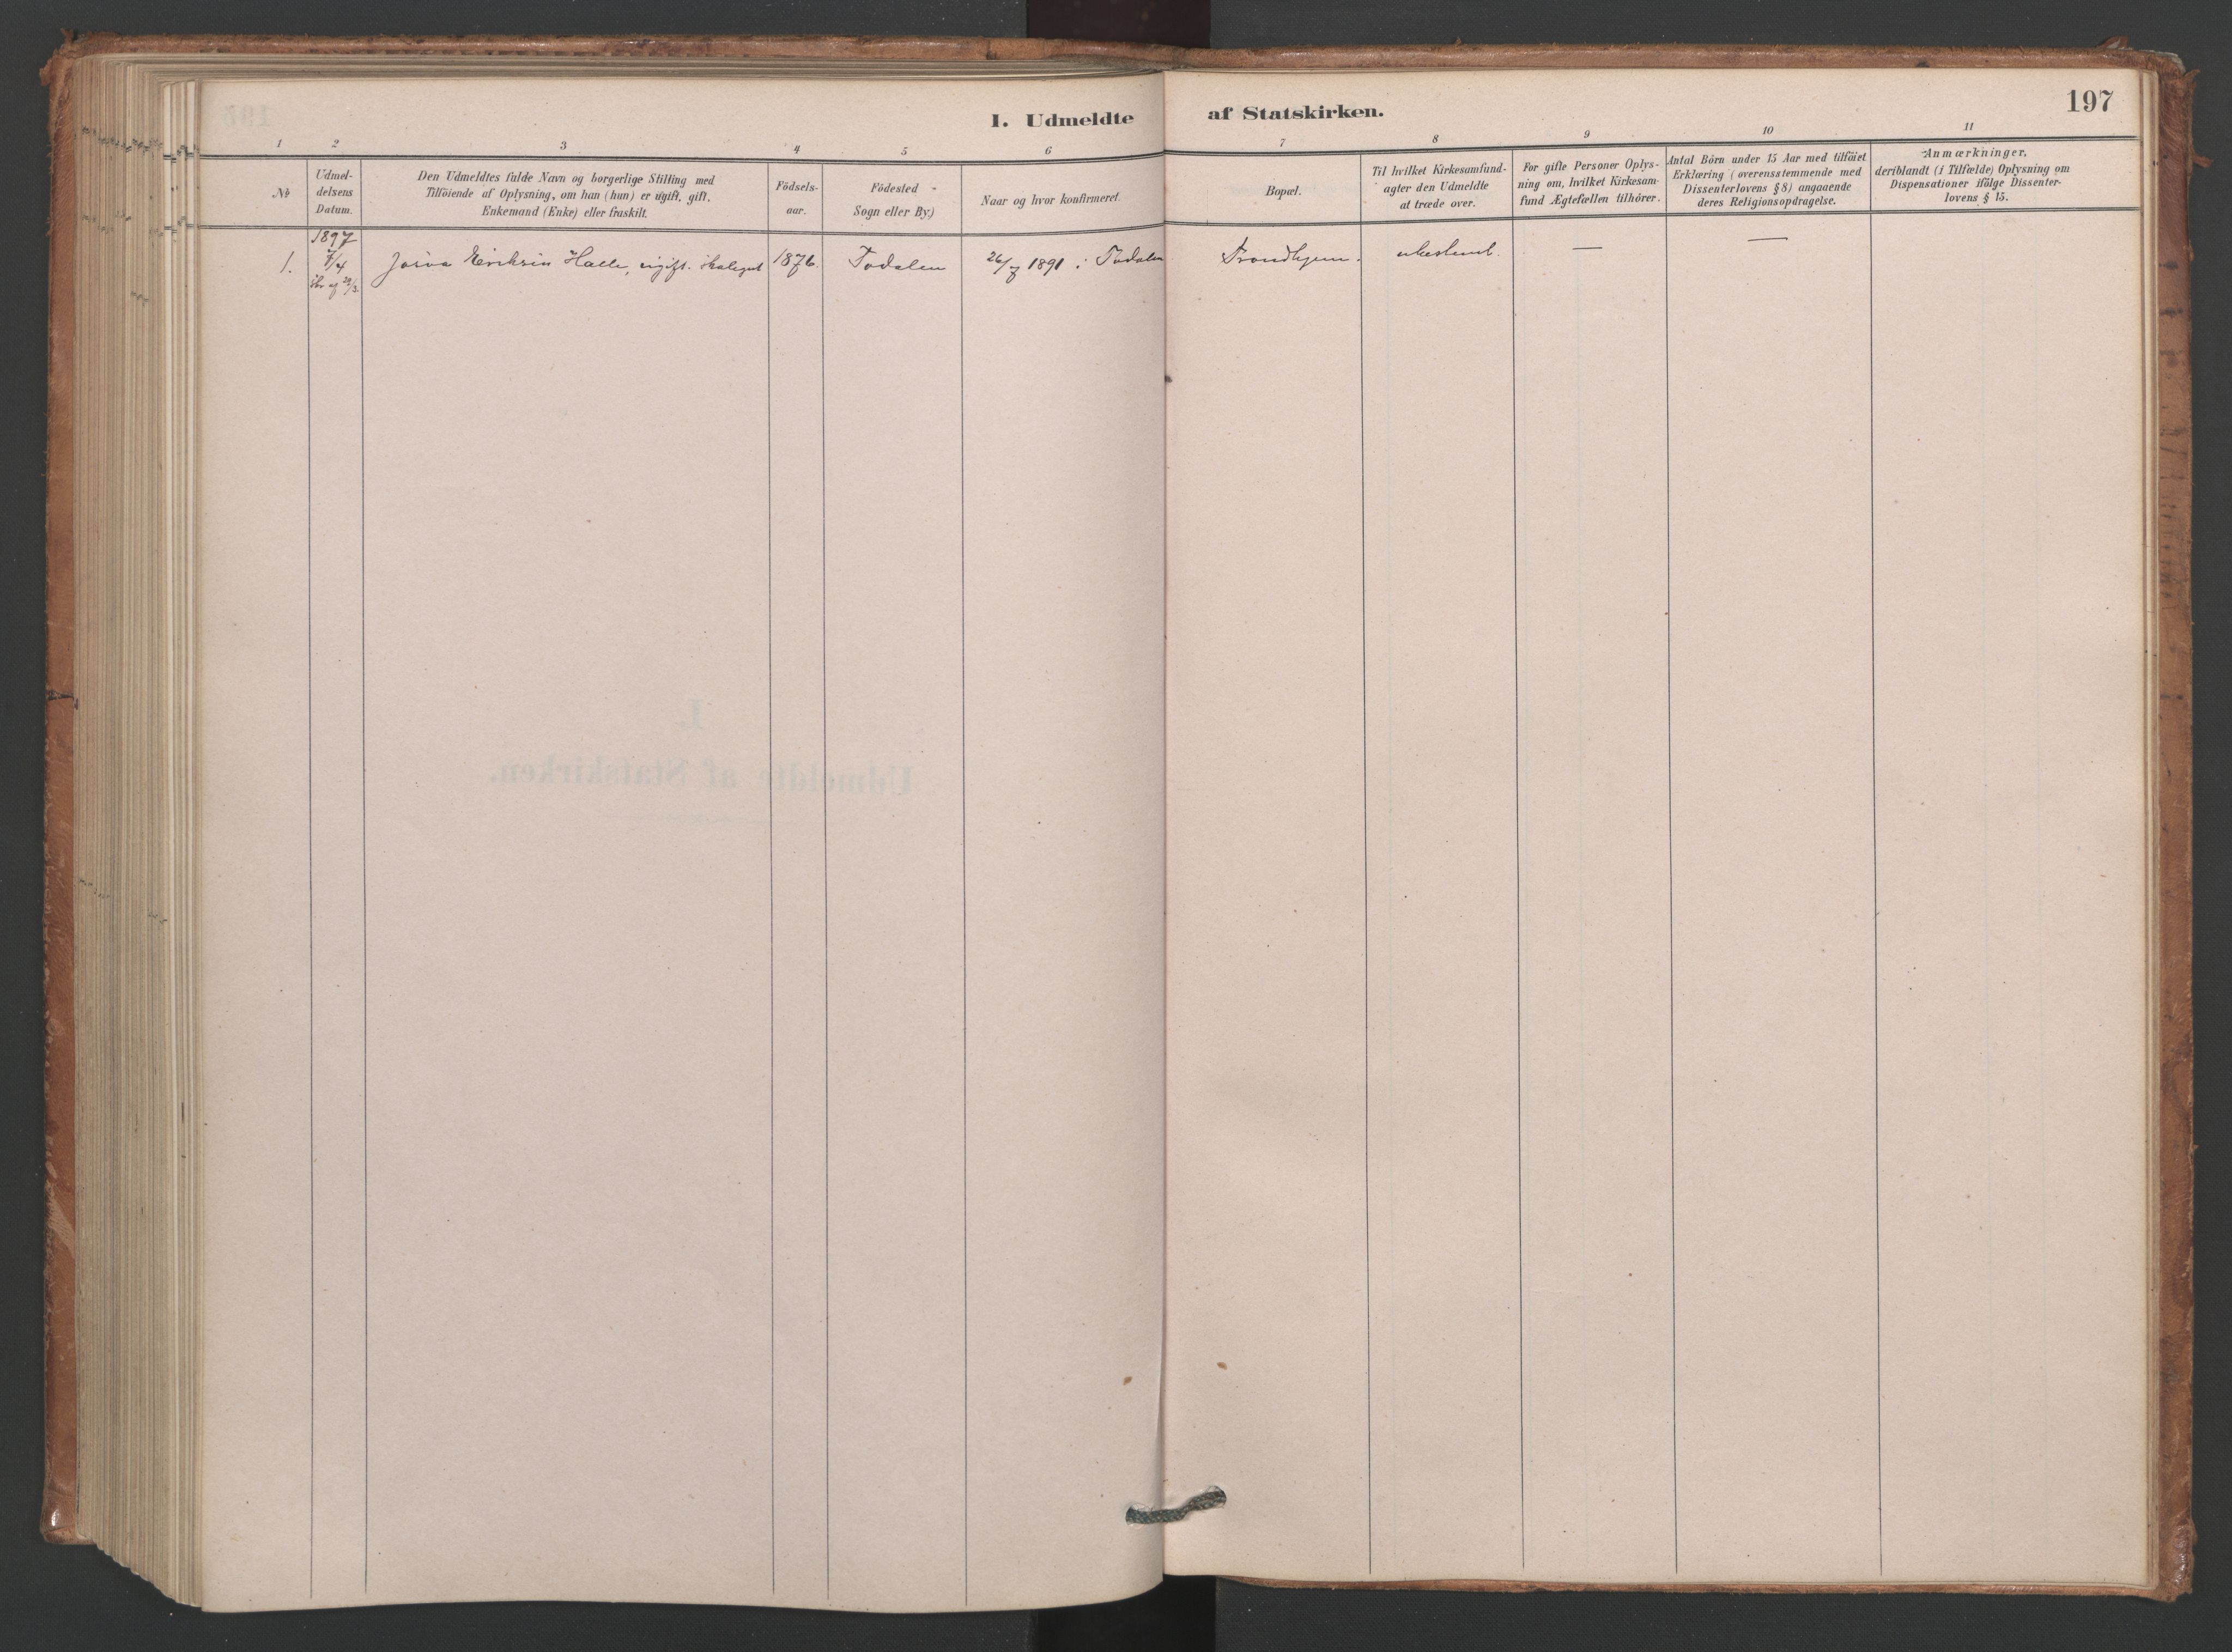 1. Udmeldte af Statskirken.
197
1 2 3 4 5 6 7 8 9 10 11
No
Udmel-
delsens
Datum.
Den Udmeldtes fulde Navn og borgerlige Stilling med
Tilföiende af Oplysning, om han (hun) er ugift, gift,
Enkemand (Enke) eller fraskilt.
Födsels-
aar.
Födested
Sogn eller By.)
Naar og hvor konfirmeret.
Bopæl.
Til hvilket Kirkesamfund-
agter den Udmeldte
at træde over.
For gifte Personer Oplys-
ning om, hvilket Kirkesam-
fund Ægtefællen tilhörer.
Antal Börn under 15 Aar med tilföiet
Erklæring (overensstemmende med
Dissenterlovens § 8) angaaende
deres Religionsopdragelse.
Anmærkninger,
deriblandt (i Tilfælde) Oplysning om
Dispensationer ifölge Dissenter-
lovens § 15.
1897
1. 7/4 Eriksen Halle, ugift. 1876. Todalen 26/7 1891 i Todalen Trondhjem. ubestemt. — —
af 29/3.